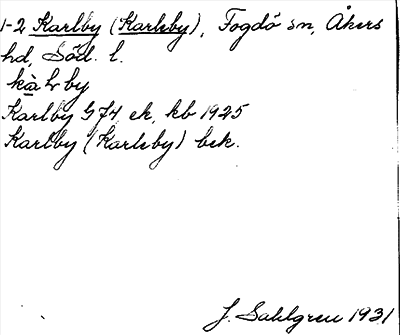 1-2 Karlby (Karleby), Fogdö sn, Åkers
hd, Söd. l.
Karlby G74 ek, kb 1925
Karlby (Karleby) bek.
J. Sahlgren 1931